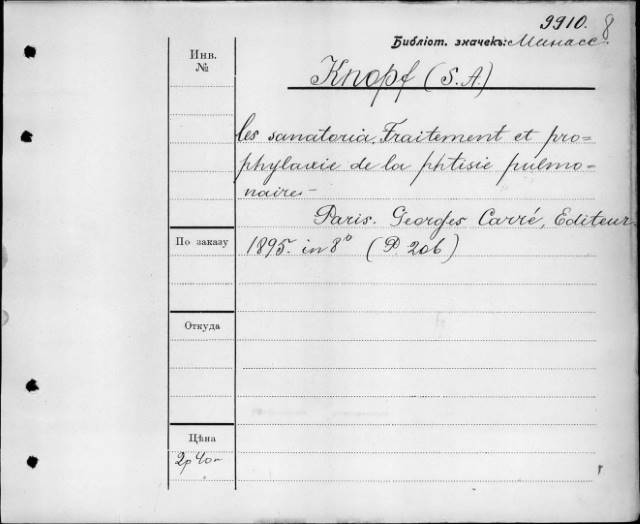 9910. 8
Библіот. значекъ: Минасс.
Инв.
№
Knopf (S. A.)
les sanatoria. Traitement et pro=
phylaxie de la phtisie pulmo-
naire-
Paris. Georges Carré, Editeur.
По заказу
1895. in 8° (P. 206)
Откуда
Цѣна
2р 40-